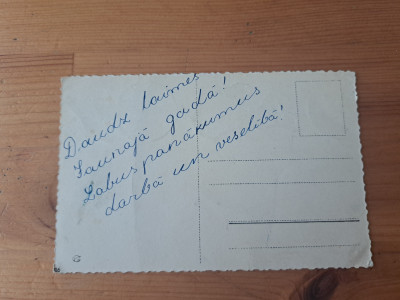 Daudz laimes
Jaunajā gadā!
Labus panākumus
darbā un veselībā!